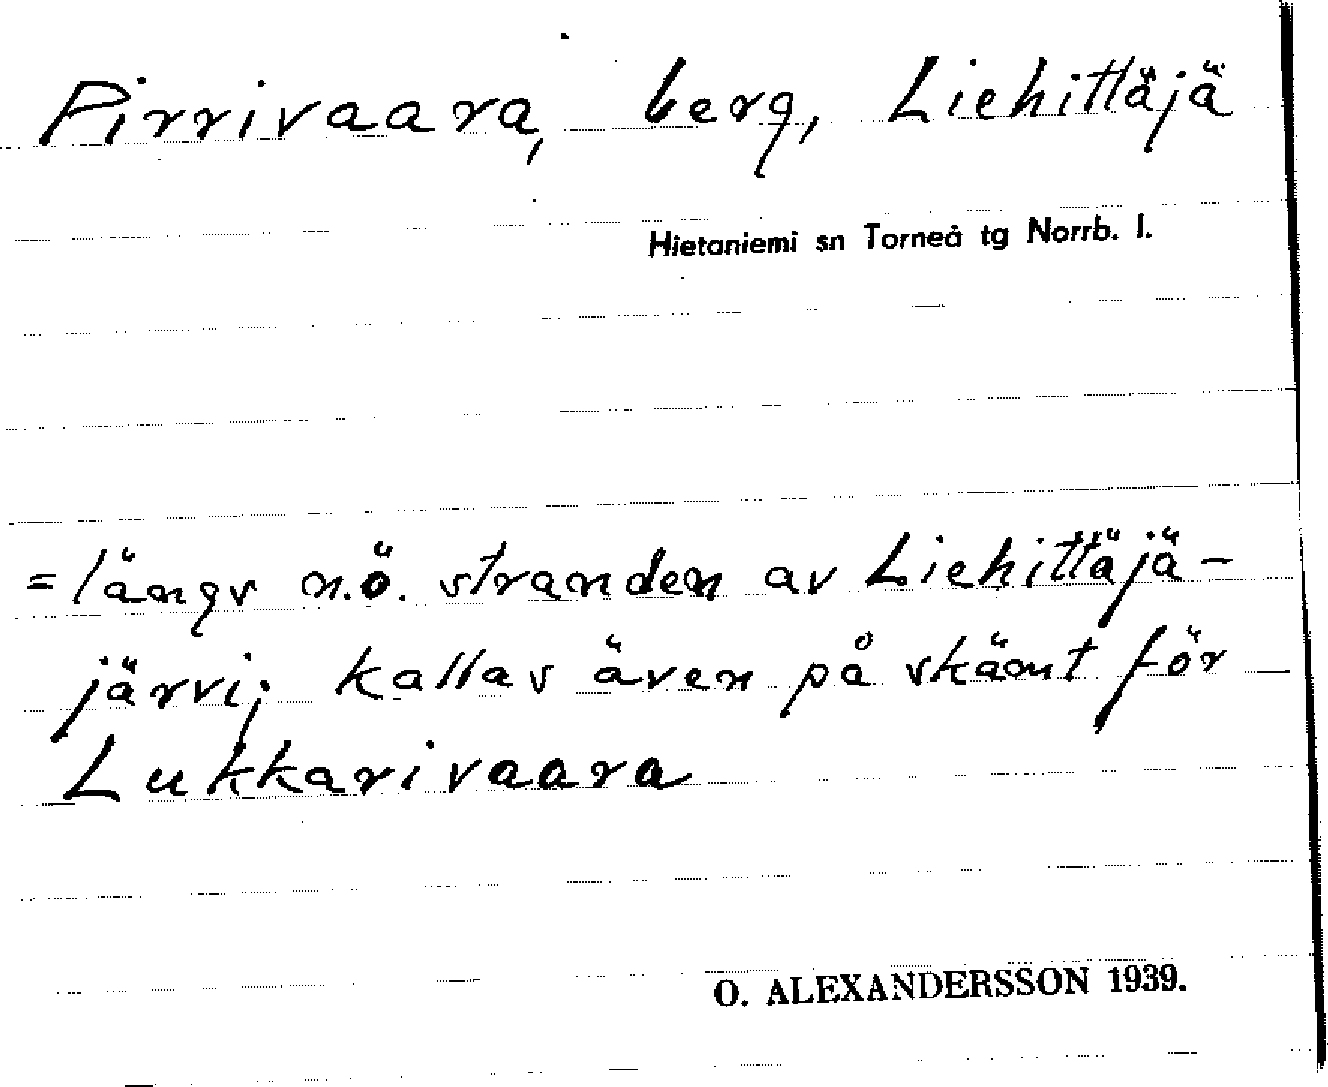 Pirrivaara, berg, Liehittäjä
Hietaniemi sn Torneå tg Norrb. l.
= längs n.ö. stranden av Liehittäjä-
järvi; kallas även på skämt för
Lukkarivaara
O. ALEXANDERSSON 1939.